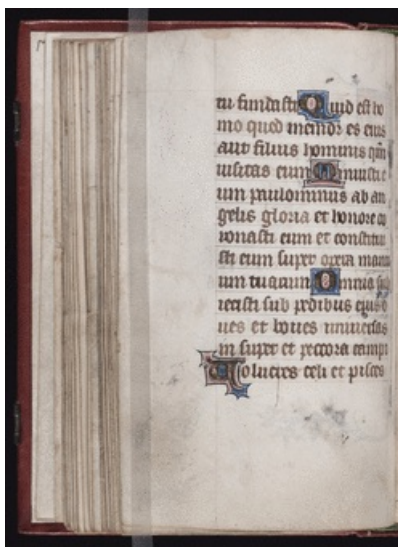 tu fundasti Quid est ho
mo quod memor es eius
aut filius hominis qm
uisitas eum Minuisti e
um paulominus ab an
gelis gloria et honore co
ronasti eum et constitui
sti eum super opera manu
um tuarum Omnia sub
iecisti sub pedibus eius o
ues et boues uniuersas
in super et peccora campi
Uolucres celi et pisces